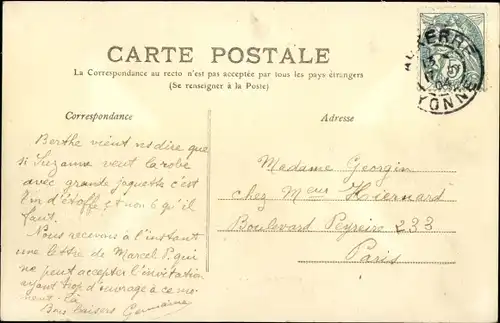 CARTE POSTALE
La Correspondance au recto n'est pas acceptée par tous les pays étrangers
(Se renseigner à la Poste)
Correspondance
Adresse
AUXERRE
YONNE
5
Berthe vient dire que
si Suzanne veut la robe
avec grande jaquette c'est
8m d'étoffe et non 6 qu'il
faut.
Nous recevons à l'instant
une lettre de Marcel P. qui
ne peut accepter l'invitation
ayant trop d'ouvrage à ce mo-
ment-là
Bons baisers Germaine
Madame Georgin
chez Mr Hiernard
Boulevard Peyreire 233
Paris